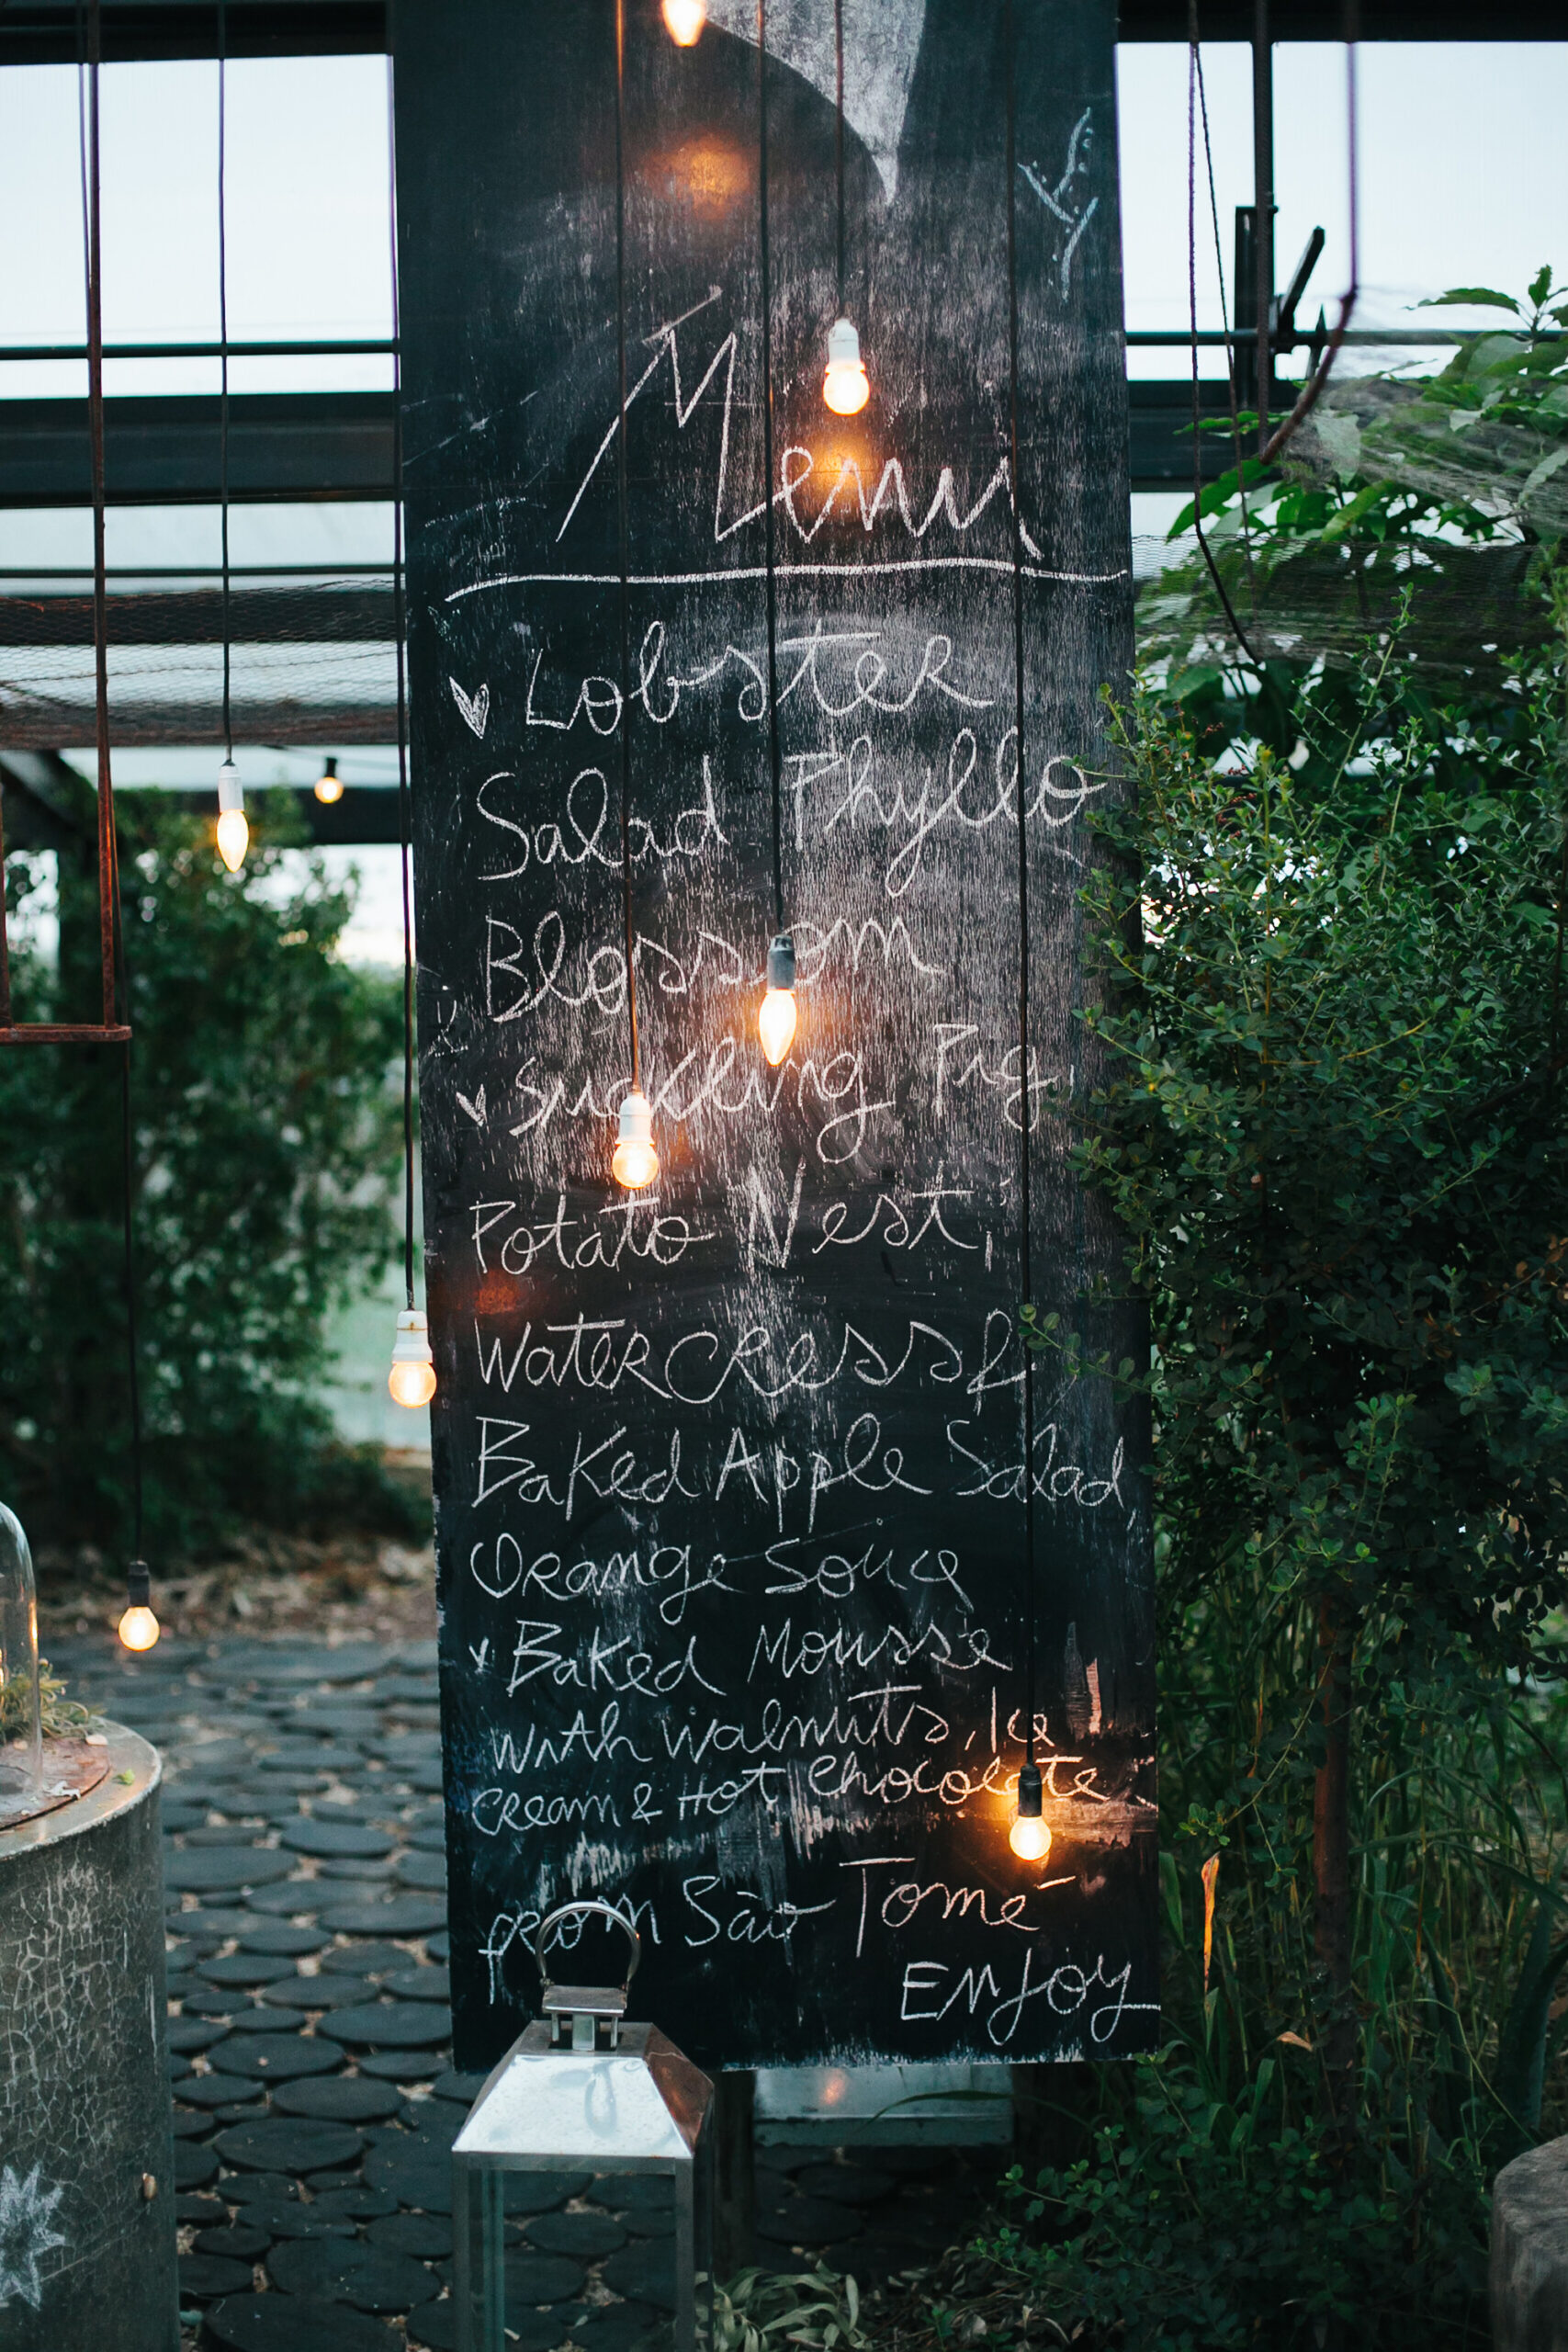 Menu
Lobster
Salad Phyllo
Blossom
Suckling Pig,
Potato Nest,
Watercress &
Baked Apple Salad,
Orange Souce
Baked Mousse
with walnuts, Ice
Cream & Hot Chocolate
from São Tomé
Enjoy